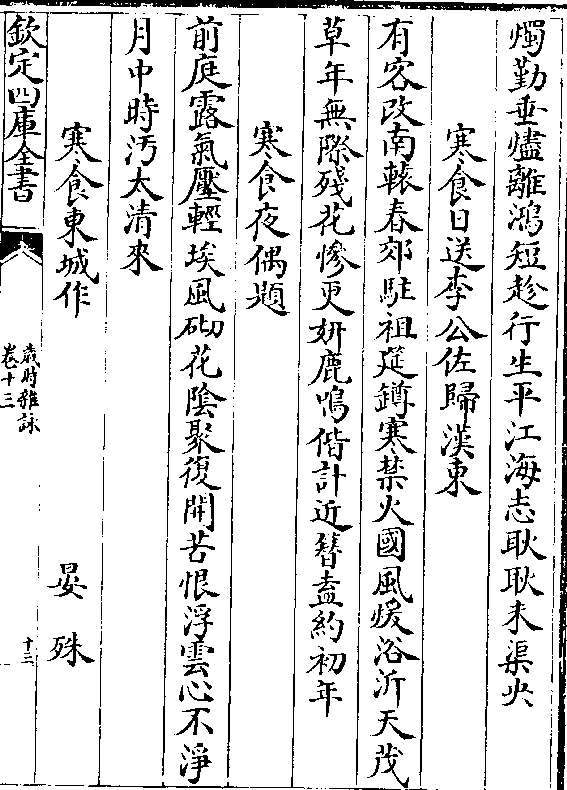 燭勤垂燼離鴻短趁行生平江海志耿耿未渠央
寒食日送李公佐歸漢東
有客改南轅春郊駐祖筵鐏寒禁火國風煖浴沂天茂
草年無際殘花慘更妍鹿鳴偕計近簪盍約初年
寒食夜偶題
前庭露氣壓輕埃風砌花陰聚復開苦恨浮雲心不淨
月中時汚太清來
寒食東城作 晏殊
欽定四庫全書
歲時雜詠
卷十三
十三